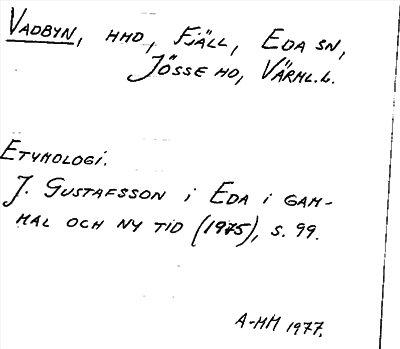 VADBYN, HMD, FJÄLL, EDA SN,
JÖSSE HD, VÄRML.L.
ETYMOLOGI.
J. GUSTAFSSON i EDA i GAM-
MAL OCH NY TID (1975), S. 99.
A-MM 1977.